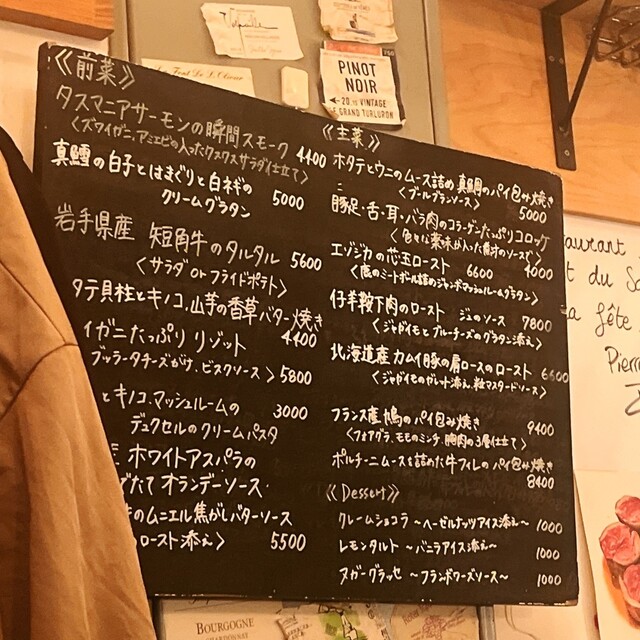 PINOT
NOIR
20. VINTAGE
LE GRAND TURLURON
《前菜》
タスマニアサーモンの瞬間スモーク 4400
〈ズワイガニ,アミエビの入ったクスクスサラダ仕立て〉
真鱈の白子とはまぐりと白ネギの
クリームグラタン 5000
岩手県産 短角牛のタルタル 5600
〈サラダ or フライドポテト〉
タテ貝柱とキノコ,山芋の香草バター焼き
4400
イガニたっぷりリゾット
ブッラータチーズがけ,ビスクソース〉5800
とキノコ,マッシュルームの 3000
デュクセルのクリームパスタ
ホワイトアスパラの
でたて オランデーソース
のムニエル焦がしバターソース
のロースト添え〉 5500
《主菜》
ホタテとウニのムース詰め 真鯛のパイ包み焼き
〈ブールブランソース〉 5000
豚足・舌・耳・バラ肉のコラーゲンたっぷりコロッケ
〈色々な薬味が入った ソースで〉
4000
エゾジカの芯玉ロースト 6600
〈鹿のミートボール詰めジャンボマッシュルームグラタン〉
仔羊鞍下肉のロースト ジュのソース 7800
〈ジャガイモとブルーチーズのグラタン添え〉
北海道産カムイ豚の肩ロースのロースト 6600
〈ジャガイモのガレット添え,粒マスタードソース〉
フランス産鳩のパイ包み焼き 9400
〈フォアグラ,モモのミンチ,胸肉の3層仕立て〉
ポルチーニムースを詰めた牛フィレのパイ包み焼き
8400
《Dessert》
クレームショコラ ~ヘーゼルナッツアイス添え~ 1000
レモンタルト ~バニラアイス添え~ 1000
ヌガーグラッセ ~フランボワーズソース~ 1000
taurant
t du
fête
Pierre
BOURGOGNE
CHARDONNAY